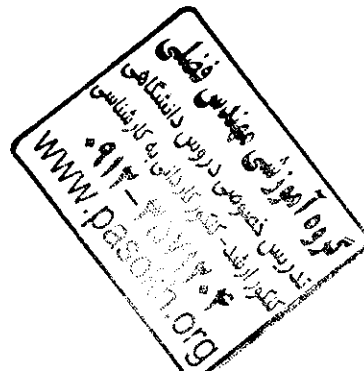 گروه آموزشی مهندس فضلی
تدریس خصوصی دروس دانشگاهی
کنکور ارشد - کنکور کاردانی به کارشناسی
۰۹۱۲-
www.pasokh.org